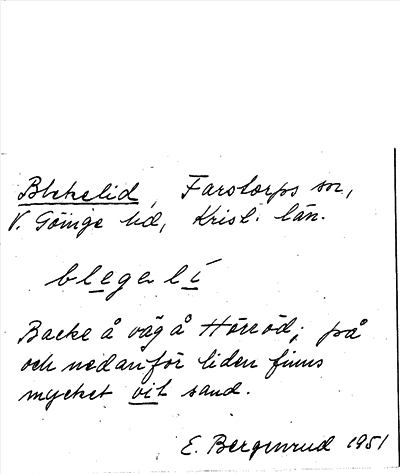 Blekelid, Farstorps sn,
V. Göinge hd, Krist. län.
blegelí
Backe å väg å Hörröd; på
och nedanför liden finns
mycket vit sand.
E. Bergenrud 1951